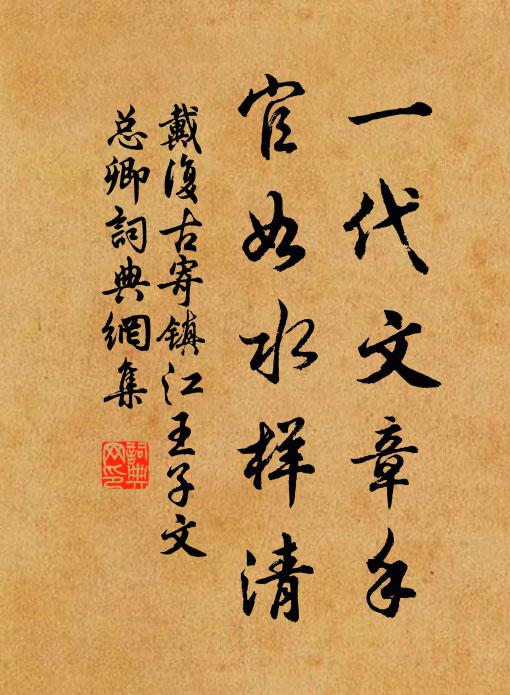 一代文章手
官如水样清
戴復古寄镇江王子文
总卿詞典網集
詞典網印